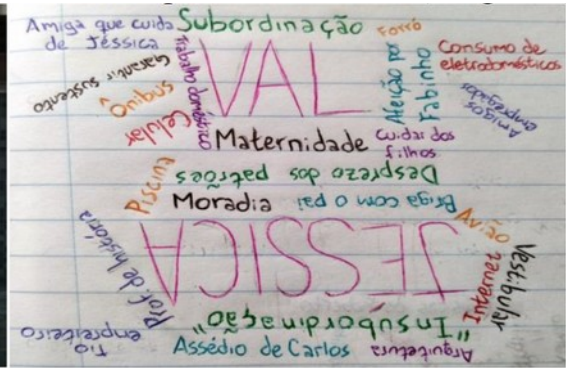 Amiga que cuida
de Jéssica
Subordinação
Forró
Consumo de
eletrodomésticos
Garantir sustento
Trabalho doméstico
VAL
Afeição por
Fabinho
Amigos
empregados
Ônibus
Celular
Maternidade
Cuidar dos
filhos
Desprezo dos patrões
Piscina
Moradia
Briga com o pai
Avião
Prof. de história
JESSICA
Internet
Vestibular
"Insubordinação"
Tio
empreiteiro
Assédio de Carlos
Arquitetura